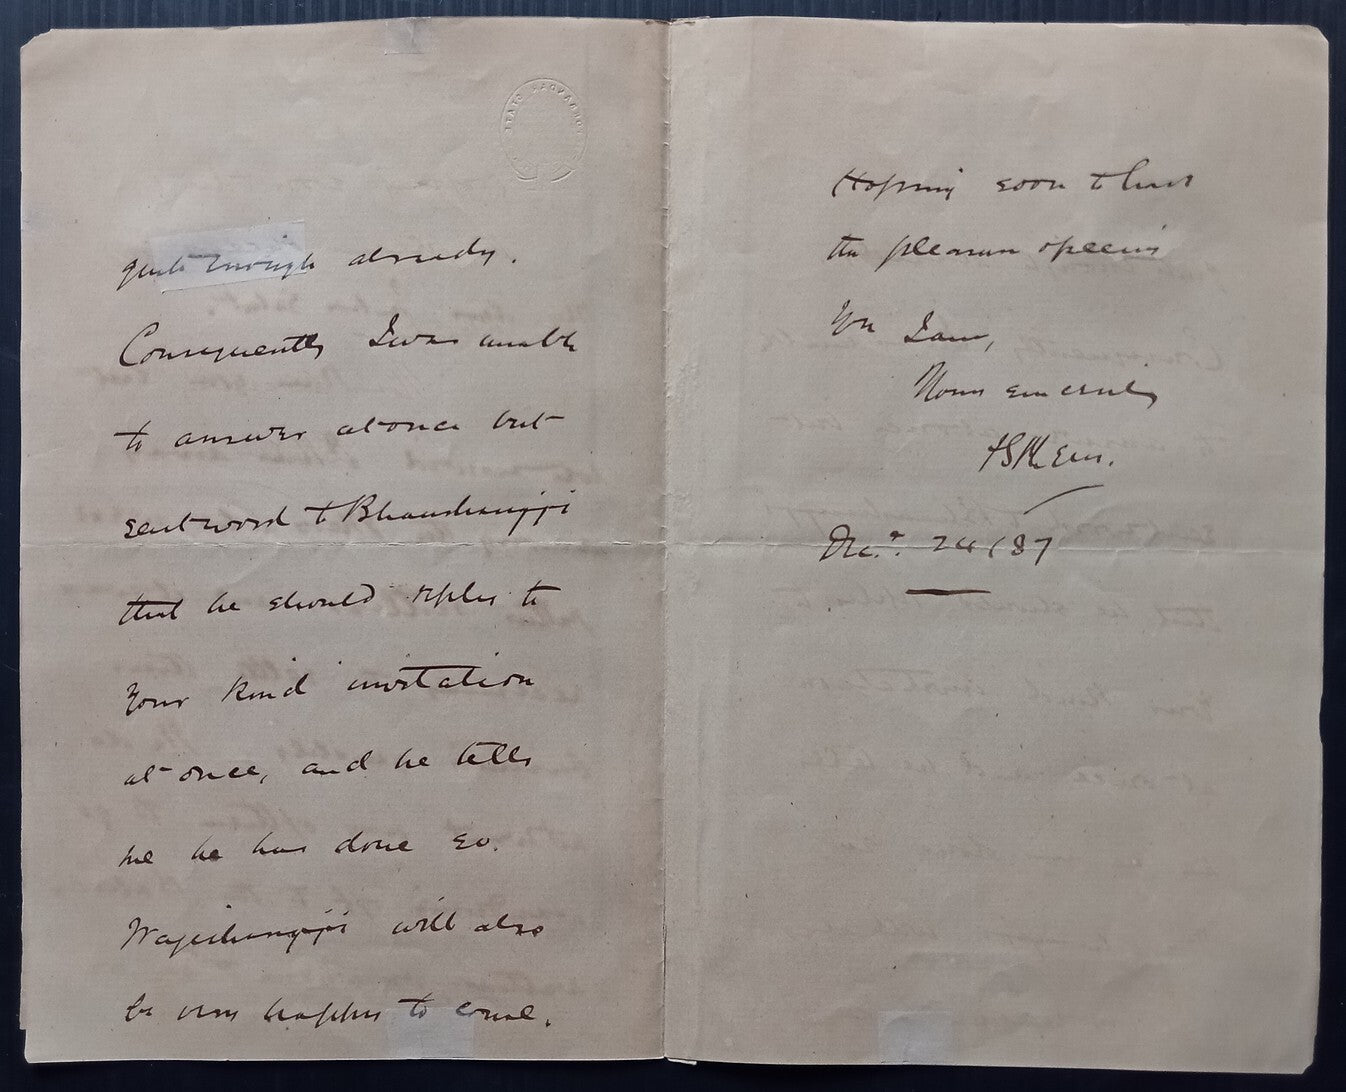 quite enough already.
Consequently I was unable
to answer at once but
sent word to Bhausingji
that he should reply to
your kind invitation
at once, and he tells
me he has done so.
will also
be very happy to come.
Hoping soon to have
the pleasure of seeing
you I am,
Yours sincerely
Dec. 24/87